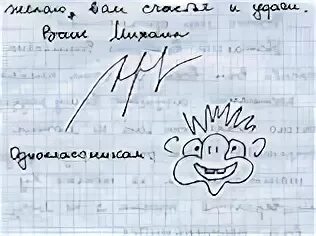 желаю, вам счастья и удачи.
Ваш Михаил
Одноклассникам.